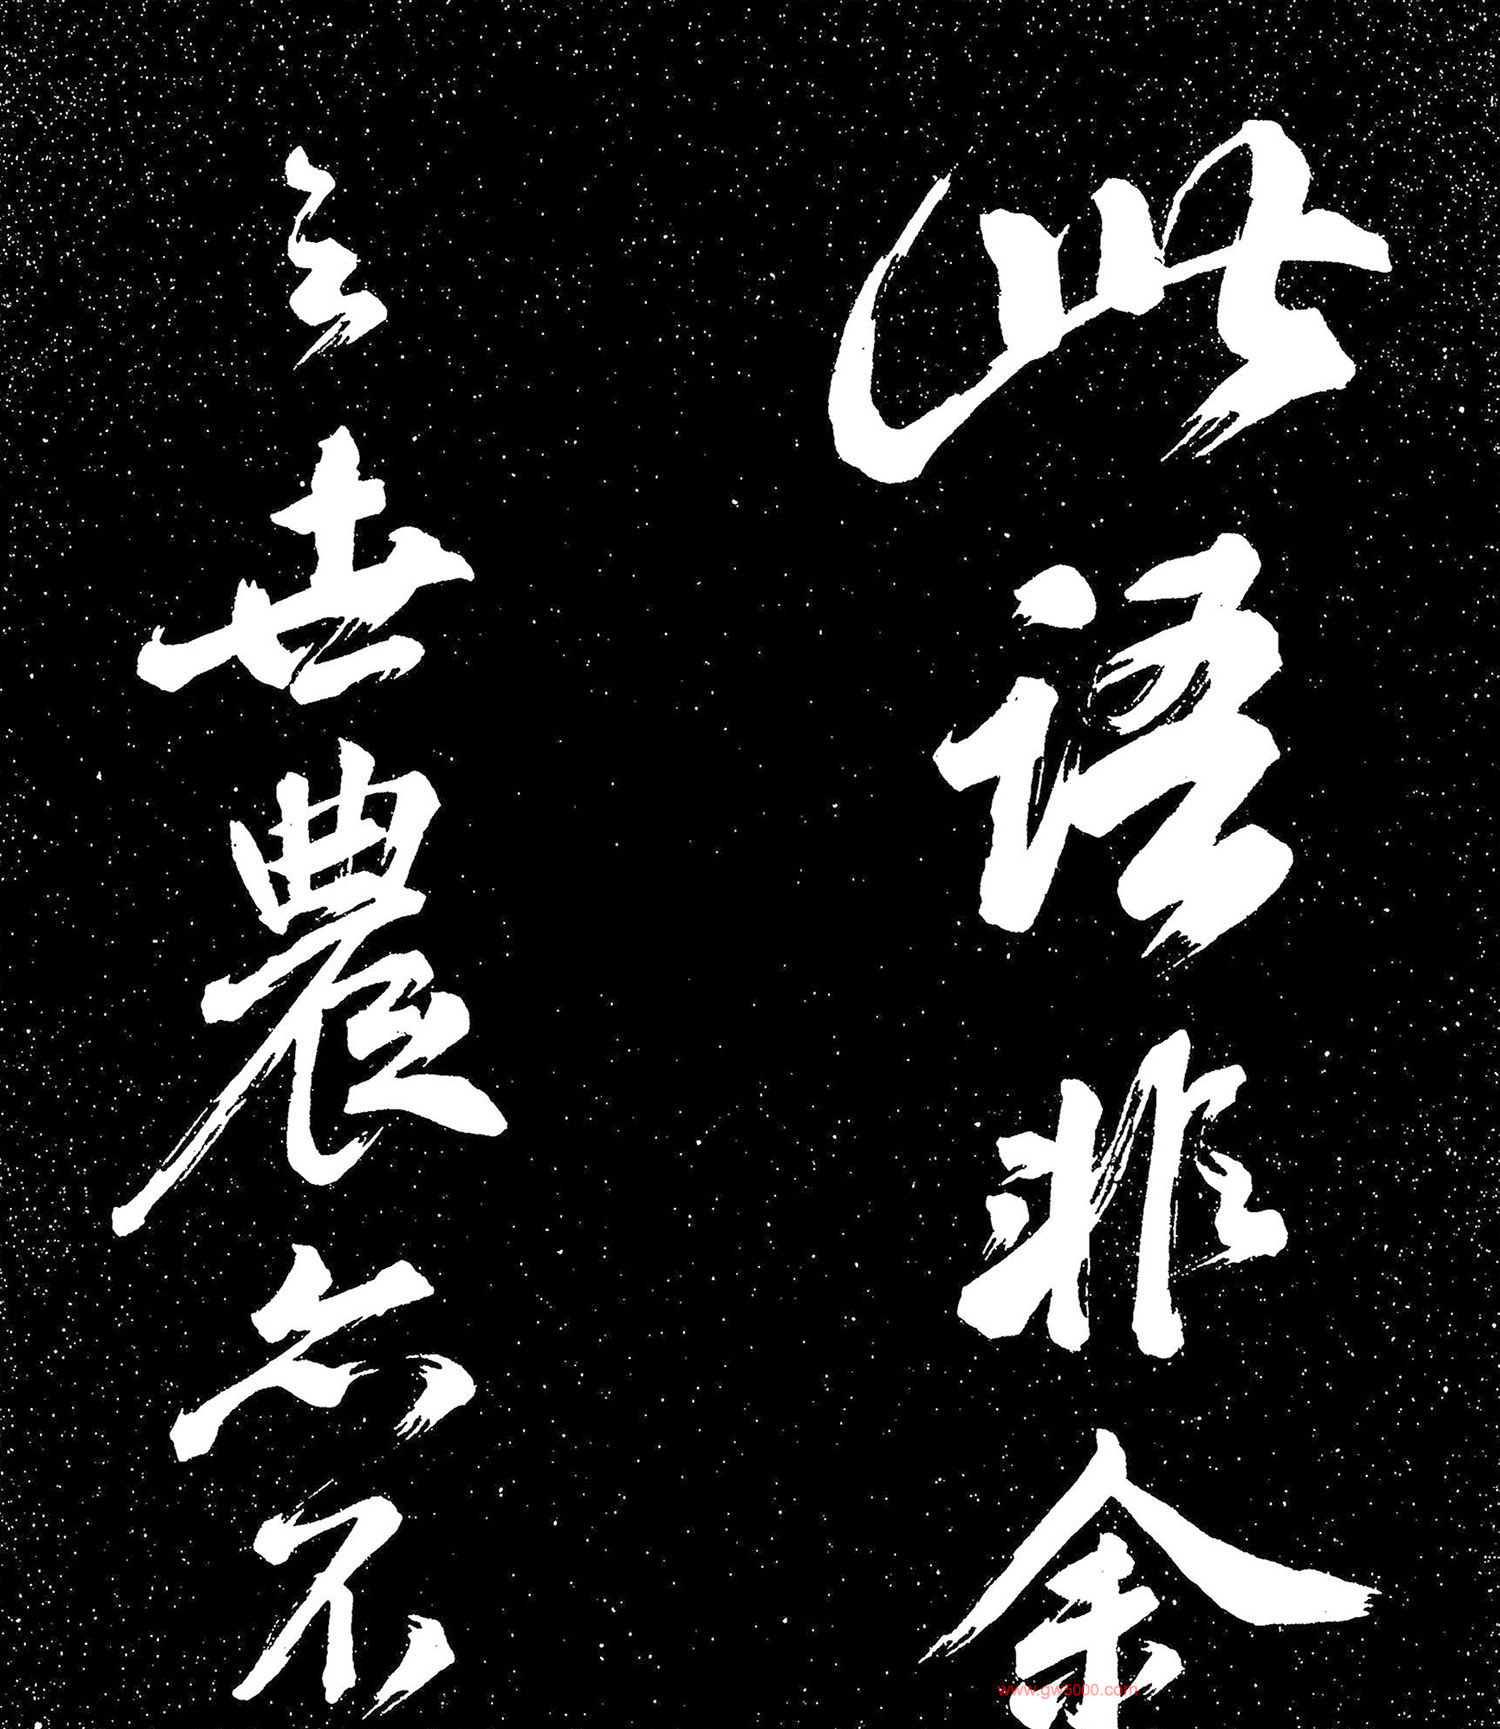 此語非余
之世農亦不
www.gw5000.com